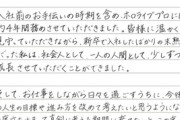 入社前のお手伝いの時期を含め、ホロライブプロに
約4年間務めさせていただきました。皆様に温かく
見守っていただきながら、新卒で入社したばかりの未熟
だった私は、社会人として、一人の人間として、少しずつ
成長させていただくことができました。
して、お仕事をしながら日々を過ごすうちに、今
人生の目標や進み方を改めて考えたいと思うようにな